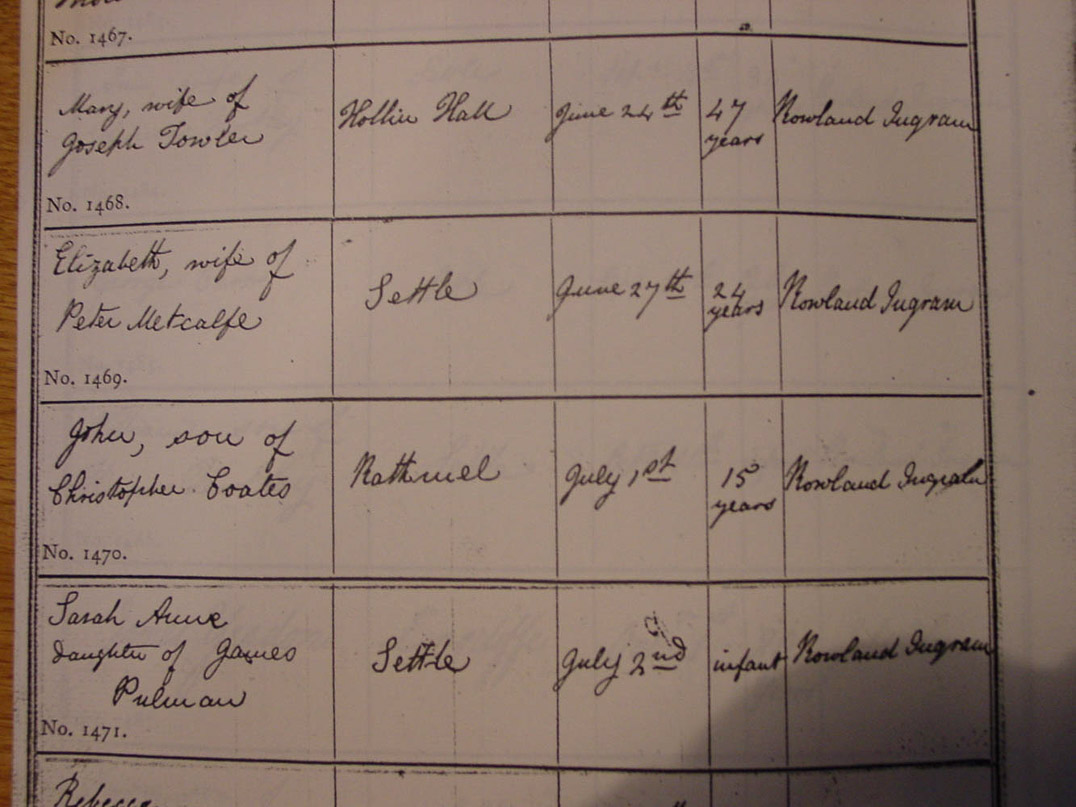 No. 1467.
Mary, wife of
Joseph Towler
Hollin Hall
June 24th
47
years
Rowland Ingram
No. 1468.
Elizabeth, wife of
Peter Metcalfe
Settle
June 27th
24
years
Rowland Ingram
No. 1469.
John, son of
Christopher Coates
Rathmel
July 1st
15
years
Rowland Ingram
No. 1470.
Sarah Anne
daughter of James
Pulman
Settle
July 2nd
infant
Rowland Ingram
No. 1471.
Rebecca